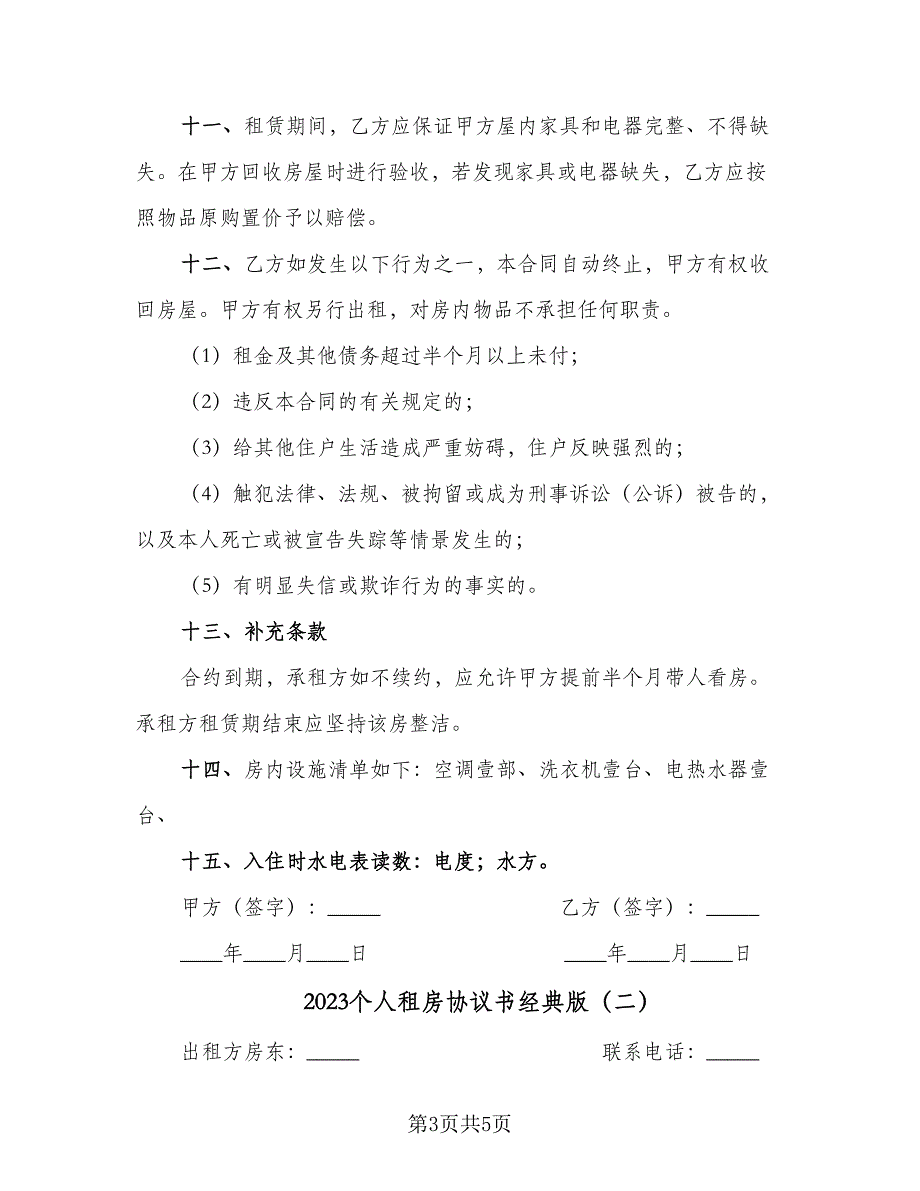 十一、租赁期间，乙方应保证甲方屋内家具和电器完整、不得缺
失。在甲方回收房屋时进行验收，若发现家具或电器缺失，乙方应按
照物品原购置价予以赔偿。
十二、乙方如发生以下行为之一，本合同自动终止，甲方有权收
回房屋。甲方有权另行出租，对房内物品不承担任何职责。
（1）租金及其他债务超过半个月以上未付；
（2）违反本合同的有关规定的；
（3）给其他住户生活造成严重妨碍，住户反映强烈的；
（4）触犯法律、法规、被拘留或成为刑事诉讼（公诉）被告的，
以及本人死亡或被宣告失踪等情景发生的；
（5）有明显失信或欺诈行为的事实的。
十三、补充条款
合约到期，承租方如不续约，应允许甲方提前半个月带人看房。
承租方租赁期结束应坚持该房整洁。
十四、房内设施清单如下：空调壹部、洗衣机壹台、电热水器壹
台、
十五、入住时水电表读数：电度；水方。
甲方（签字）：_____ 乙方（签字）：_____
____年____月____日 ____年____月____日
2023个人租房协议书经典版（二）
出租方房东：_____ 联系电话：_____
第3页共5页